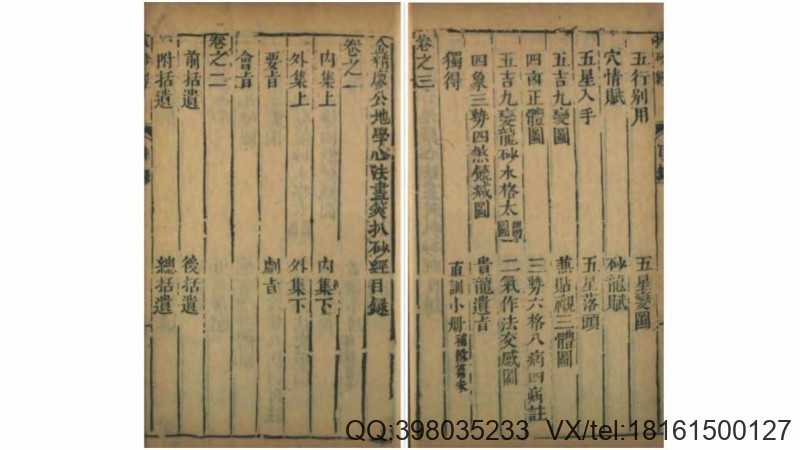 金精廖公地學心法畫筴扒砂經目錄
卷之一
內集上 內集下
外集上 外集下
要旨 劇旨
會旨
卷之二
前括遺 後括遺
附括遺 總括遺
五行別用 五星變圖
穴情賦 砂龍賦
五星入手 五星落頭
五吉九變圖 蓋貼襯三體圖
四肉正體圖 三勢六格八病四病註
五吉九變龍砂水格太 圖 二氣作法交感圖
四象三勢四煞餘減圖 貴龍遺旨
獨得 直訓小册
卷之三
QQ:398035233 VX/tel:18161500127